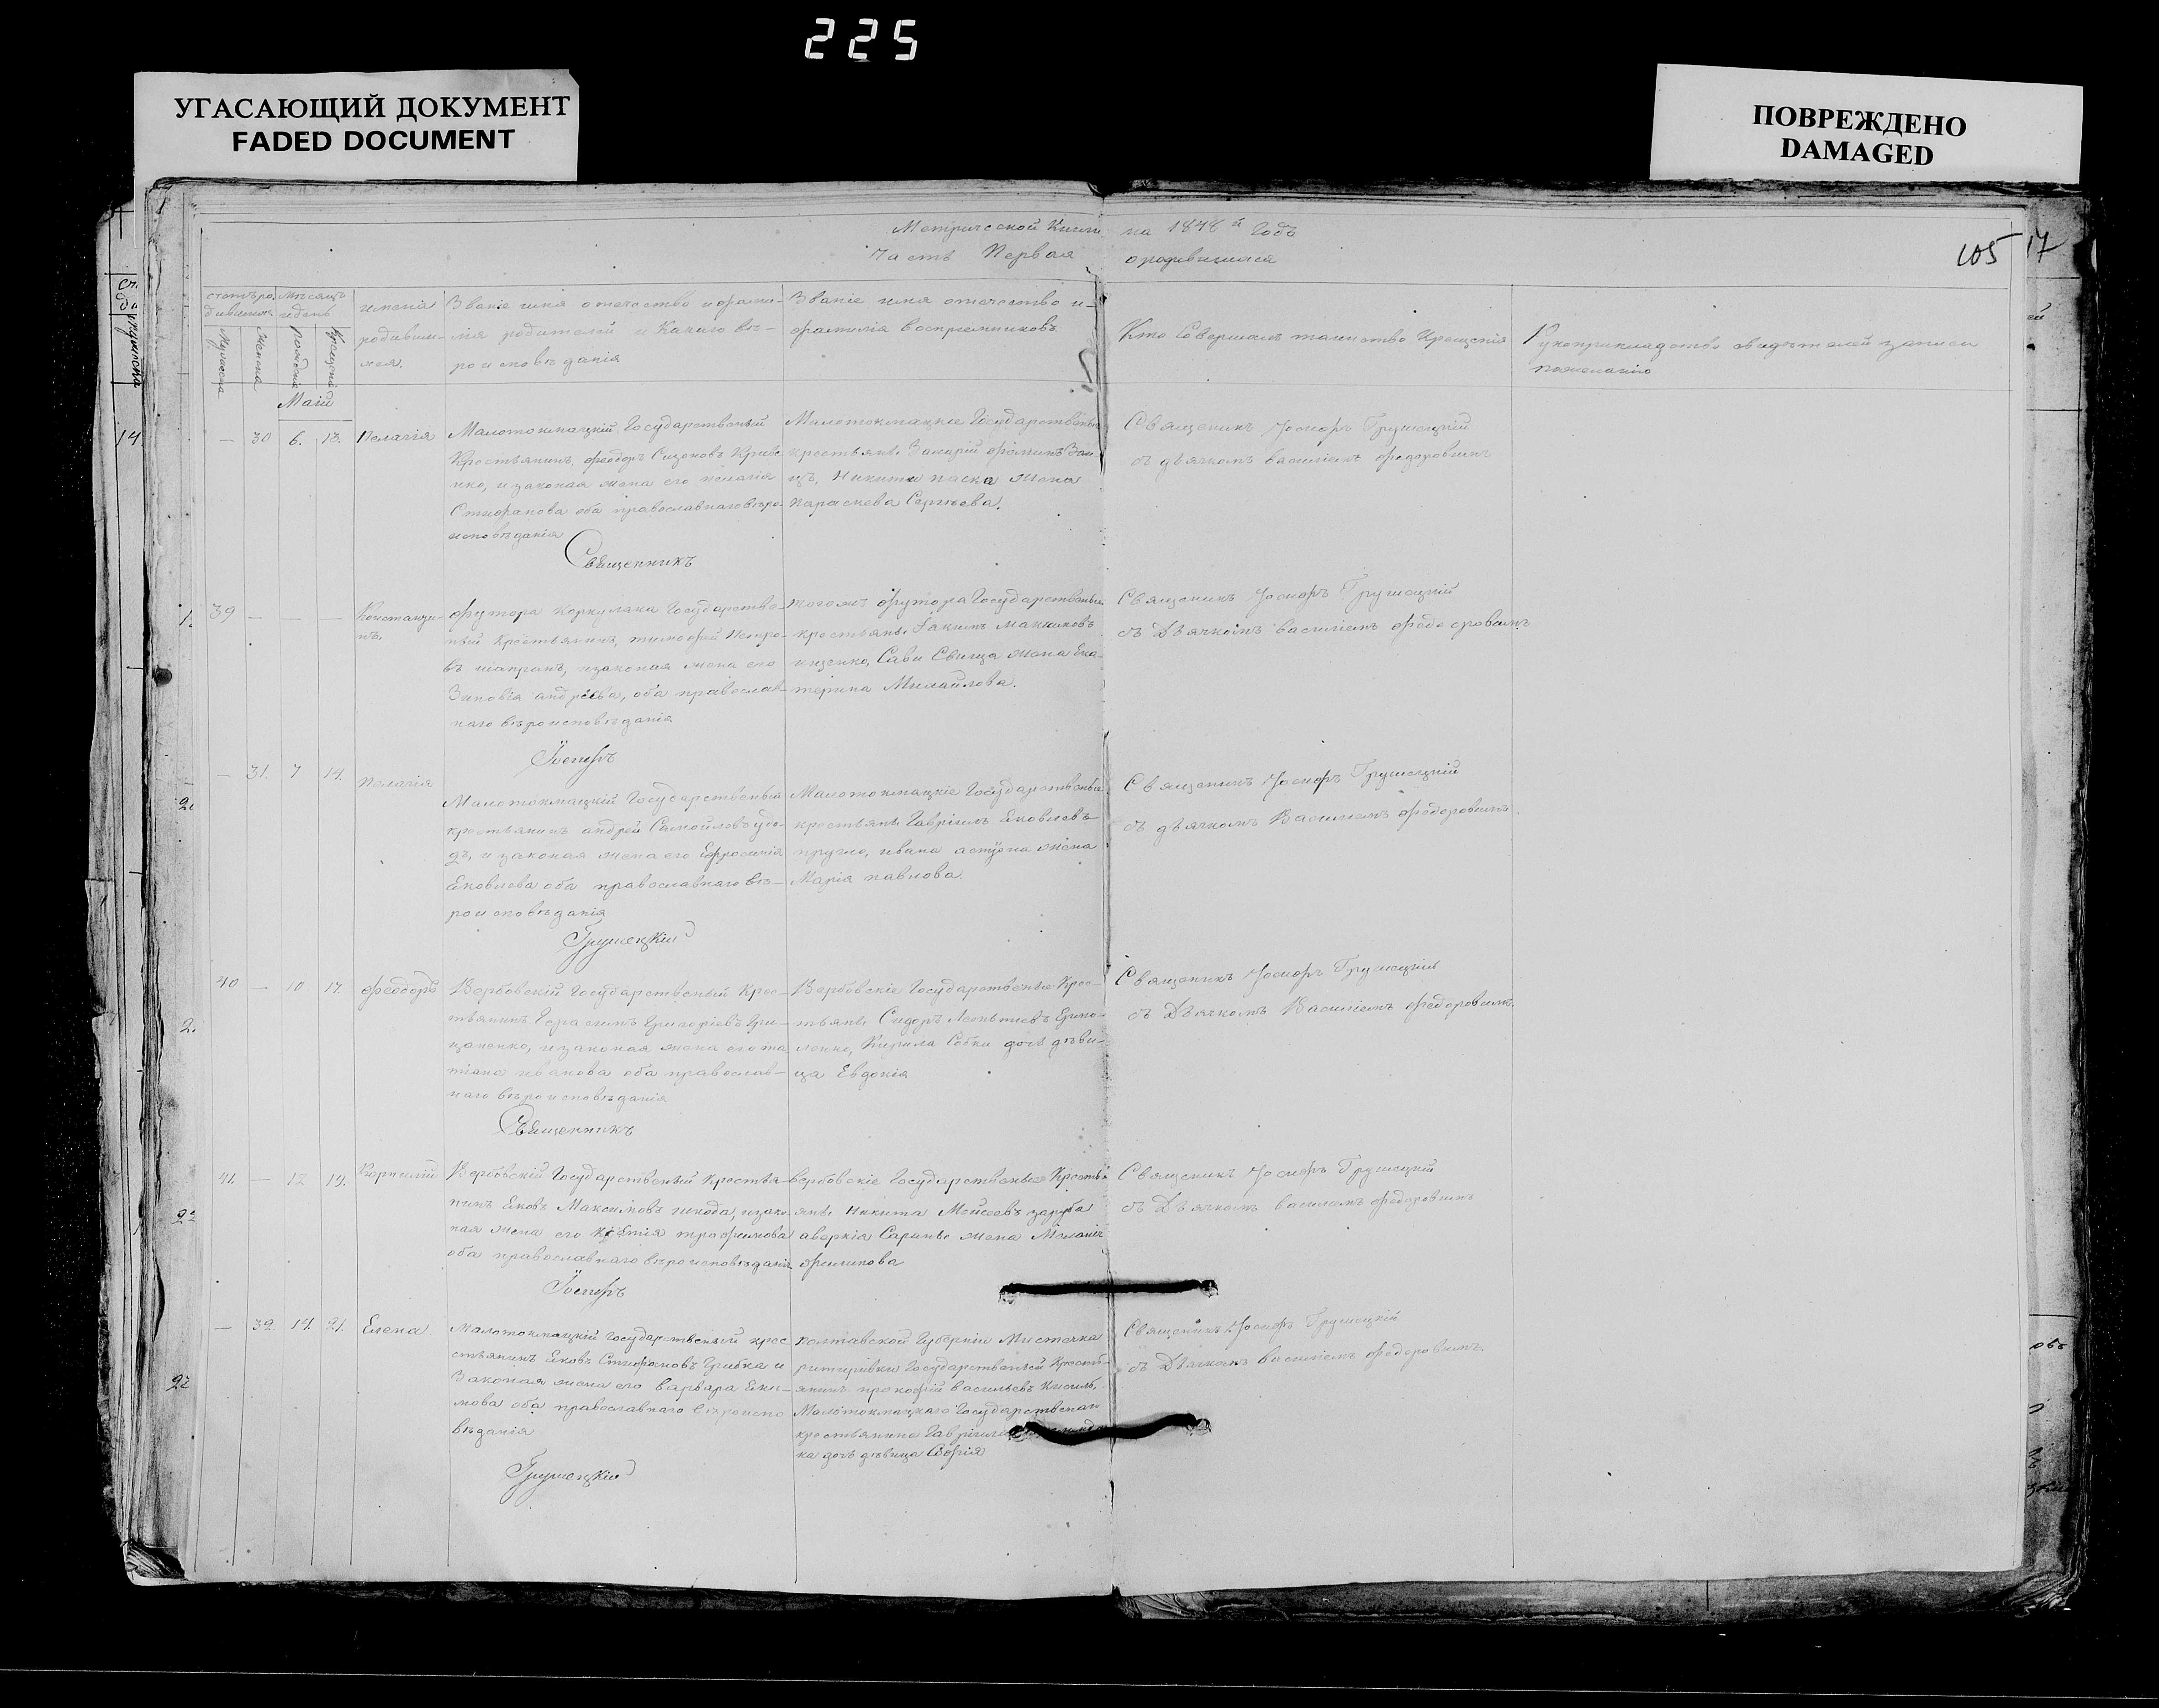 225
УГАСАЮЩИЙ ДОКУМЕНТ
FADED DOCUMENT
ПОВРЕЖДЕНО
DAMAGED
Метрической Книги на 1848й Годъ
Часть Первая о родившихся
105
17
14
Мужеска
Женска
рождения
Крещения
Маий
имена
родивши-
хся.
Звание имя отечество и фами-
лия родителей и Какого вѣ-
роисповѣдания
Звание имя отечество и
фамилия восприемниковъ
Кто Совершалъ таинство Крещения
Рукоприкладство свидѣтелей записи
по желанию
— 30 6. 13. Пелагия
Малотокмацкий Государственый
Крестьянинъ, феодоръ
и законая жена его пелагия
Стефанова оба православнаго вѣро
исповѣдания
Малотокмацкие Государственые
крестьяне Захарий
Никиты жена
параскева Сергѣева.
Священикъ Иосифъ Грушецкий
съ дьячкомъ василиемъ федоровымъ
Священникъ
39 — — — Констанди-
нъ.
футора Государстве-
ный Крестьянинъ, тимофей Петро-
въ шапранъ, изаконая жена его
Зиновия андреева, оба православ-
наго вѣроисповѣдания
тогожъ футора Государственые
крестьяне
Савы жена Ека-
терина Михайлова.
Священикъ Иосифъ Грушецкий
съ Дьячкомъ василиемъ федоровымъ
Иосифъ
— 31. 7 14. Пелагия
Малотокмацкий Государственый
крестьянинъ андрей Самойловъ
и законая жена его Ефросиния
Яковлева оба православнаго вѣ-
роисповѣдания
Малотокмацкие Государственые
крестьяне Гавриилъ Яковлевъ
ивана жена
Мария павлова.
Священикъ Иосифъ Грушецкий
съ дьячкомъ Василиемъ федоровымъ
Грушецкий
40 — 10 17. феодоръ
Вербовский Государственый Крес-
тьянинъ Герасимъ Григориевъ Гри-
цаненко, изаконая жена его та
тиана иванова оба православ-
наго вѣроисповѣдания
Вербовские Государственые Крес-
тьяне Сидоръ Леонтиевъ
Кирила дочь дѣви-
ца Евдокия
Священикъ Иосифъ Грушецкий
съ Дьячкомъ Василиемъ федоровымъ.
Священникъ
41. — 12 19. Корнилий
Вербовский Государственый Крестья-
нинъ Яковъ Максимовъ шкода, изако-
ная жена его трофимова
оба православнаго вѣроисповѣдания
Вербовские Государственые Кресть-
яне Никита Моисеевъ заруба
аверкия жена Мелания
филипова
Священикъ Иосифъ Грушецкий
съ Дьячкомъ василиемъ федоровымъ
Иосифъ
— 32. 14. 21. Елена
Малотокмацкий государственый крес
стьянинъ Яковъ Стефановъ Грибка и
Законая жена его варвара Яки-
мова оба православнаго вѣроиспо
вѣдания
полтавской Губернии Мистечка
Государственый Кресть-
янинъ прокофий васильевъ Кисиль,
Малотокмацкаго Государственаго
крестьянина Гавриила
ка дочь дѣвица София
Священикъ Иосифъ Грушецкий
съ Дьячкомъ василиемъ федоровымъ.
Грушецкий